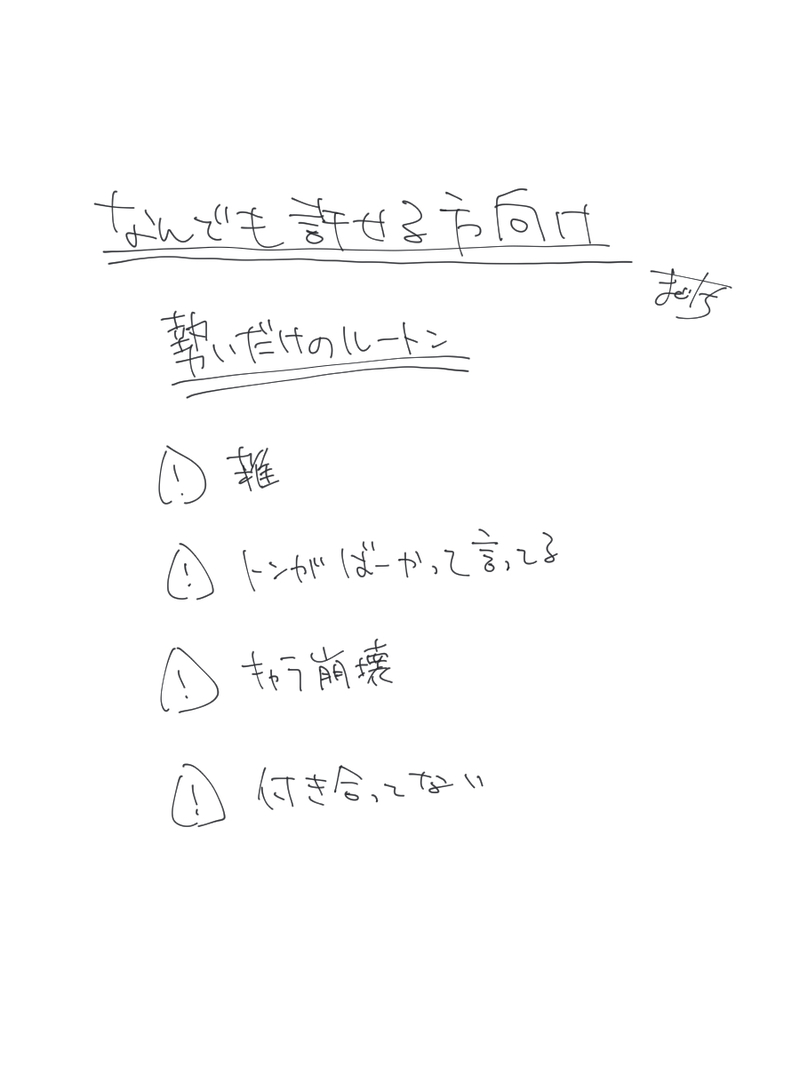 なんでも許せる方向け
勢いだけのルートン
! 雑
! トンがばーかって言ってる
! キャラ崩壊
! 付き合ってない